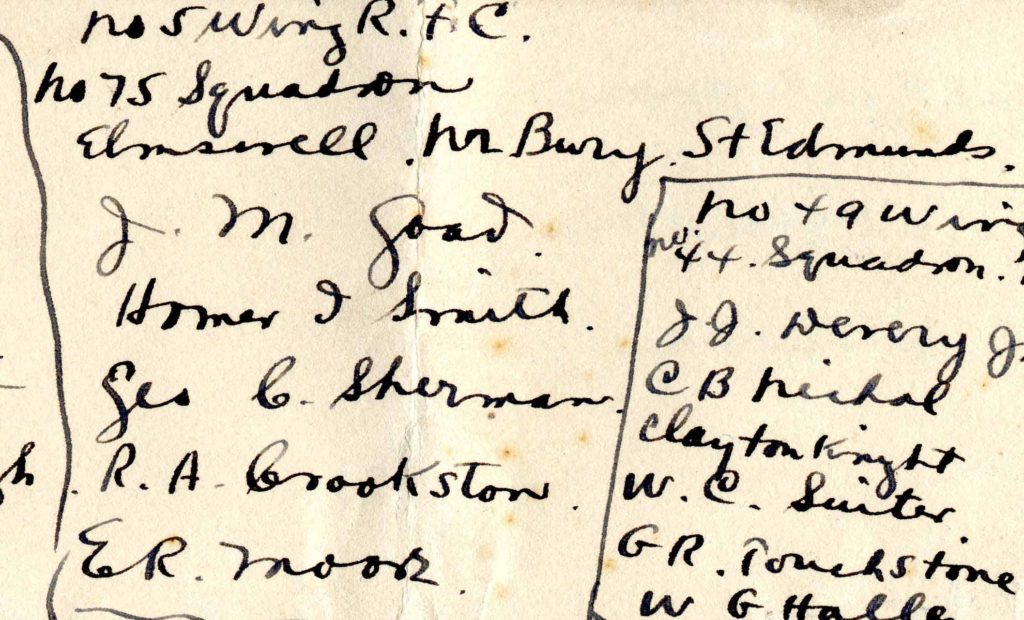 No 5 Wing R.F.C.
No 75 Squadron
Elmswell. Nr Bury. St Edmunds.
J. M. Goad.
Homer I Smith.
Geo C. Sherman.
R. A. Crookston.
E R. Moore
No 49 Wing
No. 44. Squadron.
J.J. Devery Jr
C B Nichol
Clayton Knight
W. C. Suiter
G R. Touchstone
W G Halle